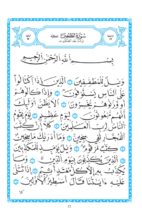 سورة المطففين
بسم الله الرحمن الرحيم
ويل للمطففين الذين إذا اكتالوا
على الناس يستوفون وإذا كالوهم
أو وزنوهم يخسرون ألا يظن أولئك
أنهم مبعوثون ليوم عظيم يوم يقوم
الناس لرب العالمين كلا إن كتاب
الفجار لفي سجين وما أدراك ما سجين
كتاب مرقوم ويل يومئذ للمكذبين
الذين يكذبون بيوم الدين وما
يكذب به إلا كل معتد أثيم إذا تتلى
عليه آياتنا قال أساطير الأولين